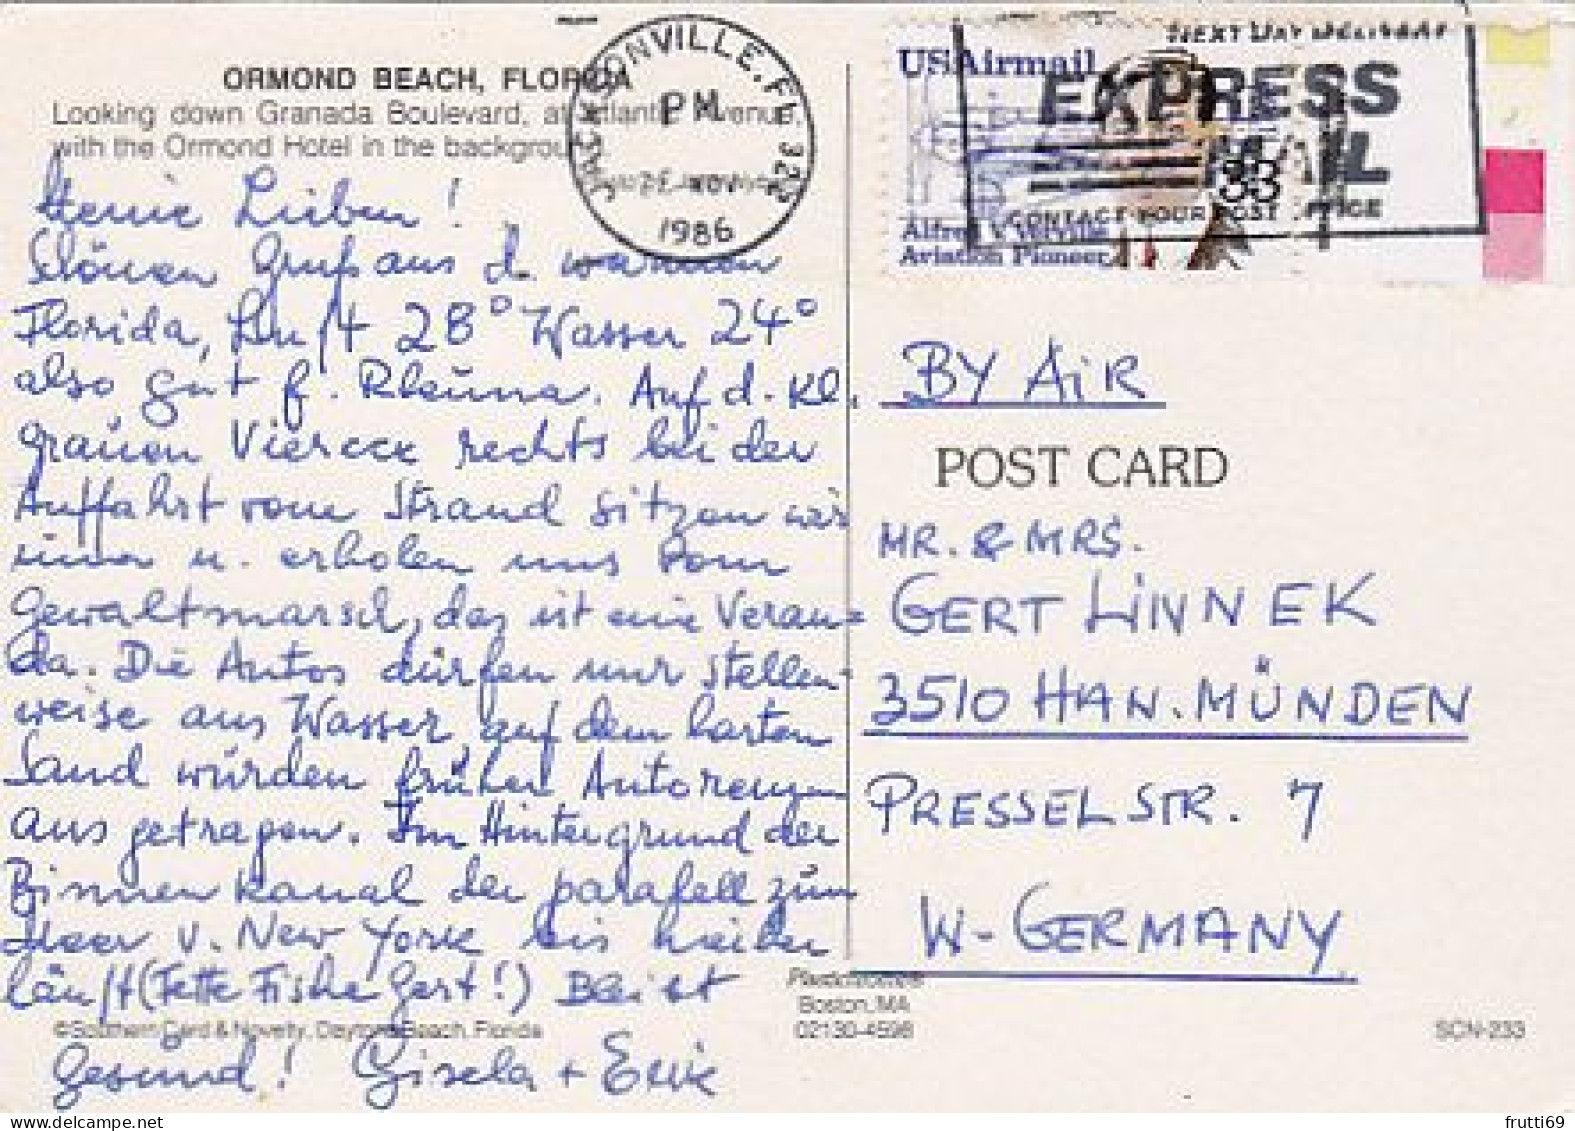 ORMOND BEACH, FLORIDA
Looking down Granada Boulevard, at Atlantic Avenue,
with the Ormond Hotel in the background.
Lieben!
Gruß aus d. warmen
Florida, Luft 28° Wasser 24°
also gut f. Rheuma. Auf d. kl.
grauen Viereck rechts bei der
Auffahrt vom Strand sitzen wir
immer u. erholen uns vom
Gewaltmarsch, das ist eine Veran=
da. Die Autos dürfen nur stellen-
weise ans Wasser, auf dem harten
Sand würden früher Autorennen
ausgetragen. Im Hintergrund der
Binnenkanal der parallell zum
Meer v. New York bis hierher
läuft (Fette Fische Gert!) Bleibt
gesund! Gisela + Erik
©Southern Card & Novelty, Daytona Beach, Florida
JACKSONVILLE, FL 322
PM
NOV
1986
US Airmail
33
Alfred V. Verville
Aviation Pioneer
NEXT DAY DELIVERY
EXPRESS
MAIL
CONTACT YOUR POST OFFICE
BY AIR
POST CARD
MR. & MRS.
GERT LINNEK
3510 HAN. MÜNDEN
PRESSELSTR. 7
W-GERMANY
Plastichrome®
Boston, MA
02130-4598
SCN-233
frutti69